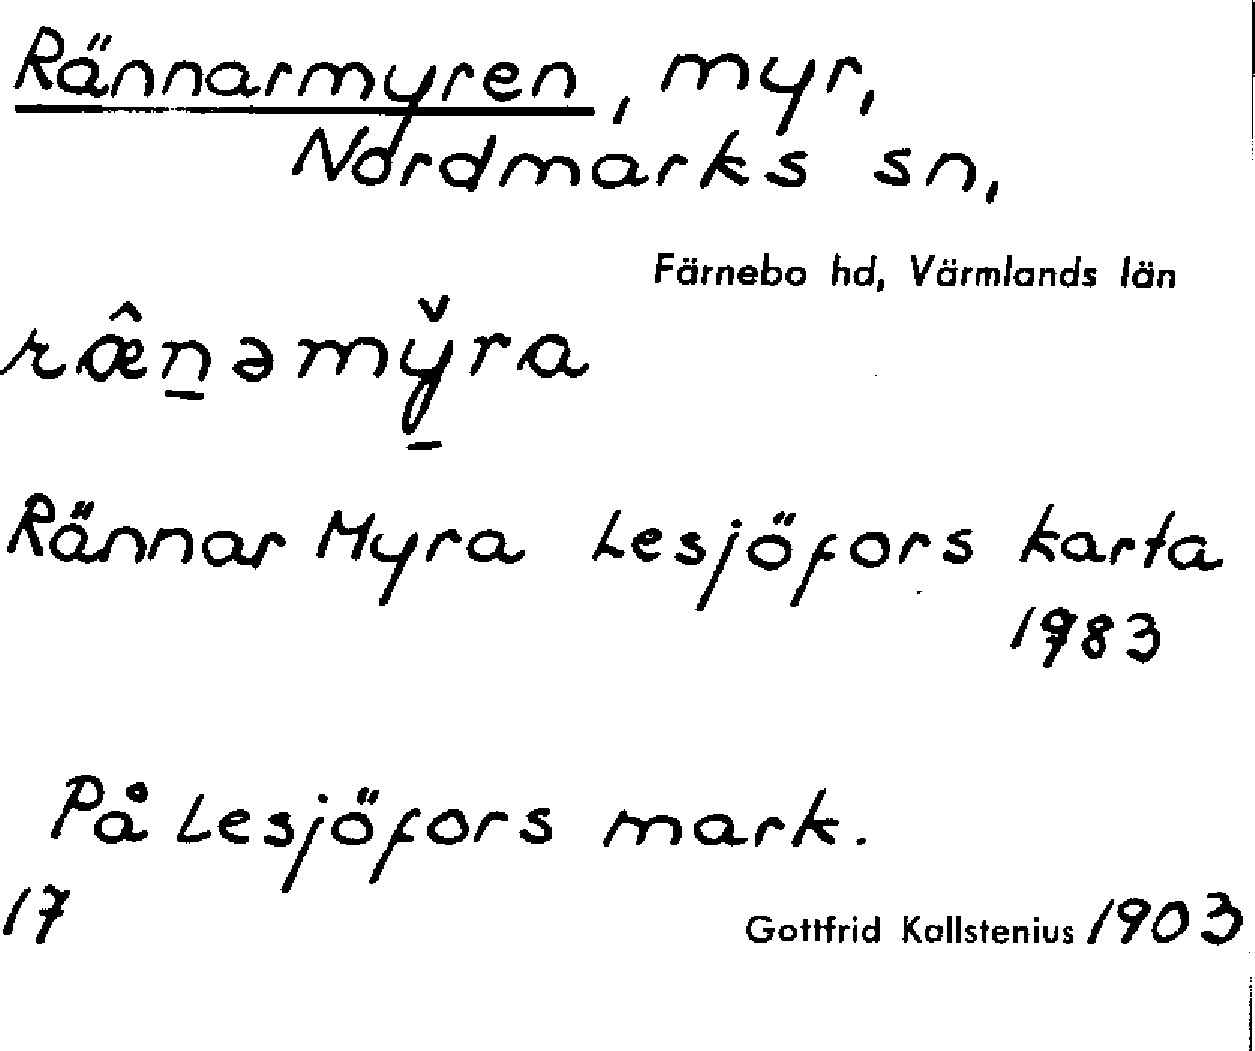 Rännarmyren, myr,
Nordmarks sn,
Färnebo hd, Värmlands län
rœ̂n̠əmy̠̌ra
Rännar Myra Lesjöfors karta
1983
På Lesjöfors mark.
17
Gottfrid Kallstenius 1903